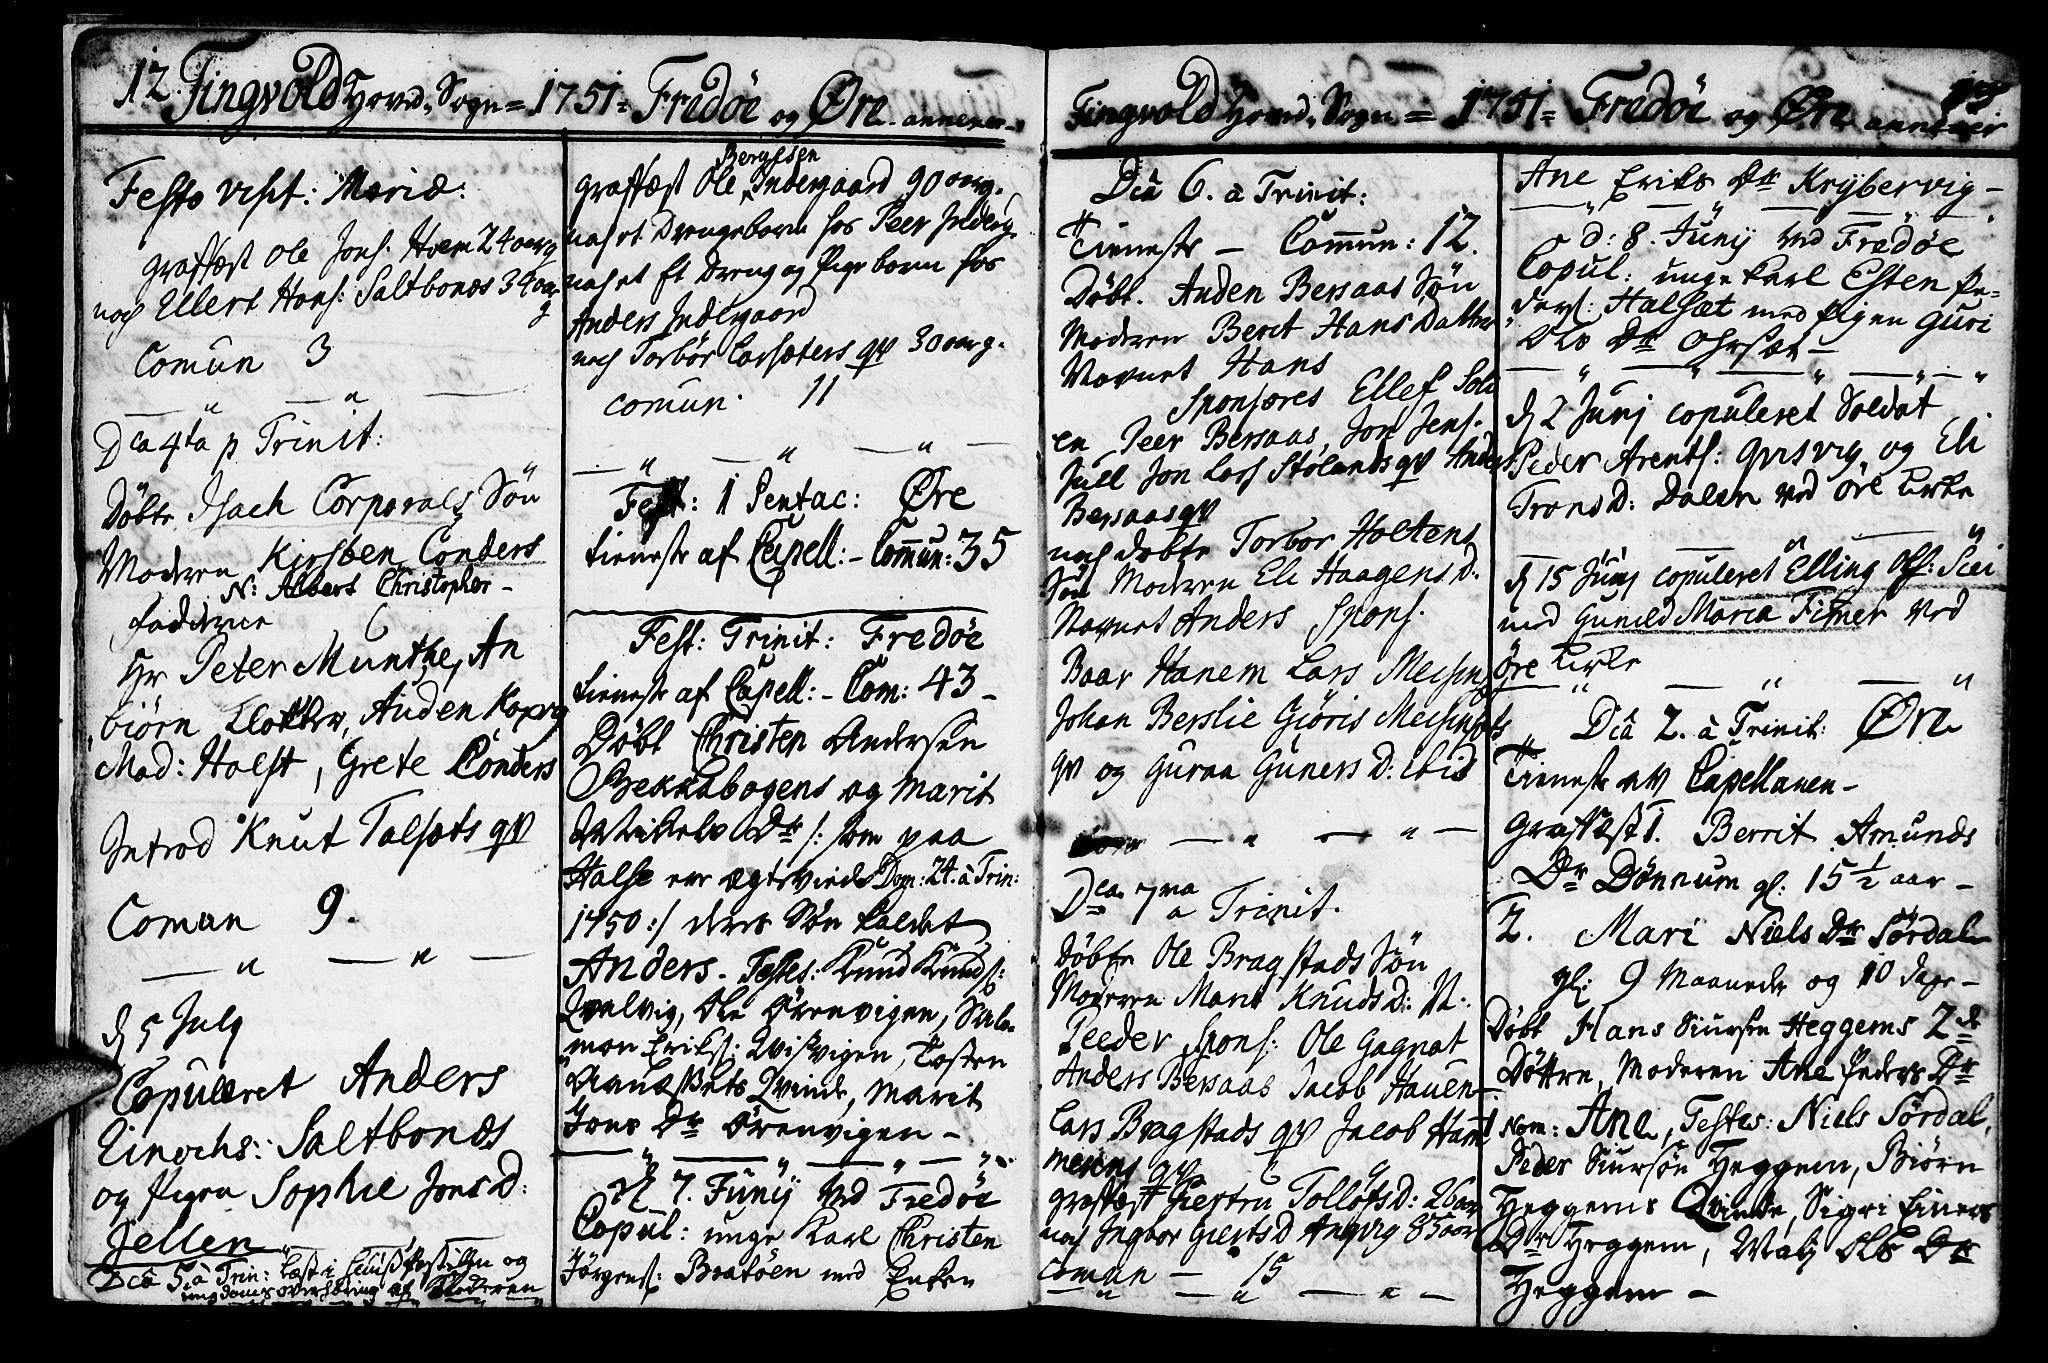 12. Tingvold Hovd. Sogn = 1751 = Fredöe og Øre annexer
Festo visit: Mariæ:
graffæst Ole Jons. Hoem 24 aarg
noch Ellert Hans: Saltbonæs 39 aar
g
Comun 3
Dca 4ta p Trinit:
Döbte Isach Corporals Sön
Moderen Kirsten Conders
N: Albert Christopher
fadderne
Hr Peter Munthe, An
biörn Klokker, Auden Korsvig
Mad: Holst, Grete Conders
Introd Knut Talsæts qv
Comun 9.
d 5 July
Copuleret Anders
Einochs: Saltbonæs
og Pigen Sophie Jons D:
Jellen
Dca 5 à Trin: læst i
ungdoms overhöring af Klockeren
Bergesen
graffæst Ole Indergaard 90 aarg.
noch et Drengebarn hos Peer Inderg.
noch et et Dreng og Pige barn hos
Anders Indergaard
noch Torbör Larsæters qv 30 aarg.
comun. 11
Fest: 1 Pentac: Øre
tieneste af Capell: - Comun: 35
Fest: Trinit: Fredöe
tieneste af Capell: - Com: 43 -
Döbt Christen Andersen
Bekkabogens og Marit
Dr /: som paa
Halse er ægteviede Dom: 24. à Trin:
1750 :/ deres Sön kaldet
Anders. Testes: Knud Knuds:
Qvalvig, Ole Örenvigen, Salo-
mon Eriks: Qvisvigen,
Qvinde, Marit
Jons Dr Örenvigen -
d 7. Junij ved Fredöe
Copul: unge Karl Christen
Jörgens: Bratöen med Enken
Tingvold Hovd. Sogn = 1751 = Fredöe og Øre annexer 13
Dca 6. à Trinit:
Tieneste - Comun: 12.
Döbt. Anden Bersaas Sön
Moderen Berit Hans Datter
Navnet Hans
Sponsores Ellef Sol
en Peer Bersaas, Jon Jens.
Jull Jon Lars Stölands qv Anders
Bersaas qv
noch döbte Torbor Holtens
Sön Moderen Eli Haagens D:
Navnet Anders Spons.
Baar Hanem Lars Meisin
Johan Berslie Giöris Meisinsets
qv og Guraa Guners D: ibid
Dca 7ma à Trinit.
Döbte Ole Bragstads Sön
Moderen Marit Knuds D: N:
Peeder Spons: Ole Gagnat
Anders Bersaas Jacob Hauen
Lars Bragstads qv Jacob Ham
merens qv
graffæst Giertru Tollofs D: 26 aar
noch Ingbor Gierts D Angvig 85 aar
Comun - 15
Ane Eriks Dr Krybervig -
d: 8. Junij ved Fredöe
Copul: unge karl Esten Pe-
ders: Halsæt med Pigen Guri
Ols Dr Ohrsæt -
d 2 Junj copuleret Soldat
Peder Arents: Qvisvig og Eli
Trons D: Dalen ved Öre kirke
d 15 Junj copuleret Elling Ols: Sæi
med Gunild Maria Fitner ved
Öre kirke
Dca 2. à Trinit: Øre
Tieneste af Capellanen -
Graffæst 1. Berrit Amunds
Dr Dönnum gl: 15 1/2 aar -
2. Mari Niels Dr Sördal
gl: 9 Maaneder og 10 dage -
Döbt Hans Siursen Heggems 2de
Döttre, Moderen Ane Peders Dr
Nom: Ane, Testes: Niels Sördal,
Peder Siursön Heggem, Biörn
Heggems Qvinde, Sigri Einers
Dr Heggem, Ols Dr
Heggem -